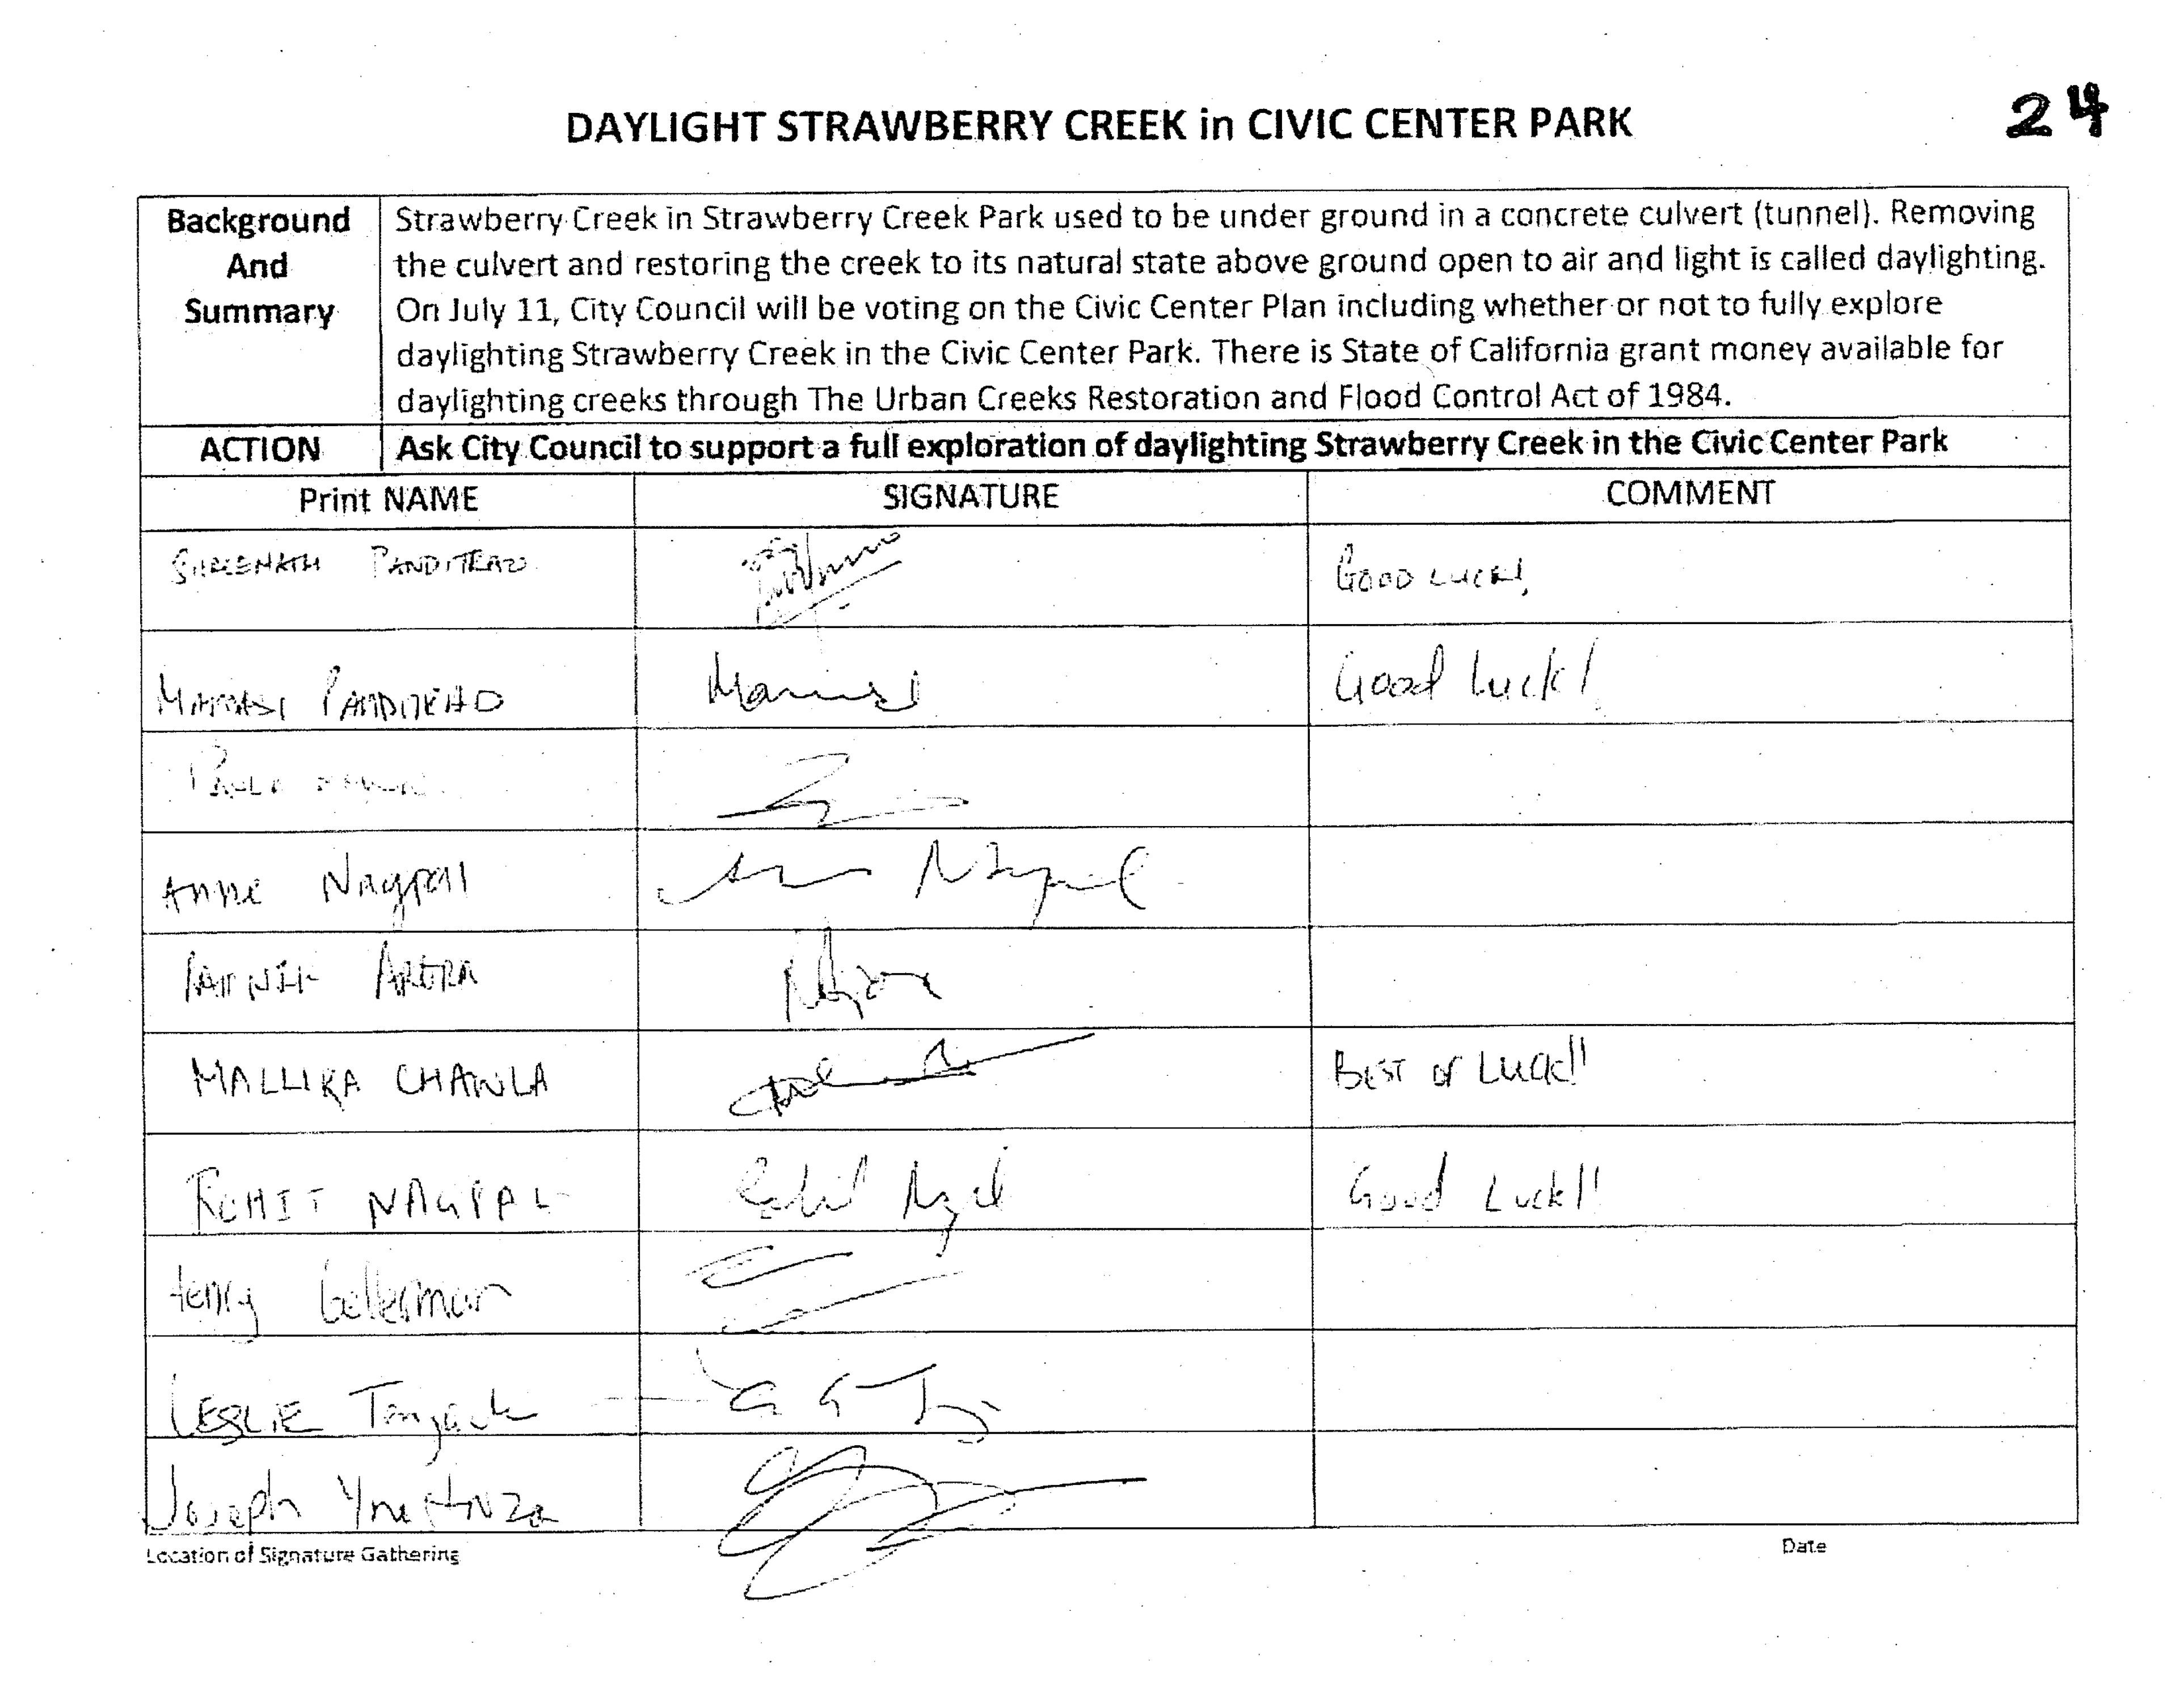 DAYLIGHT STRAWBERRY CREEK in CIVIC CENTER PARK
24
Background And Summary
Strawberry Creek in Strawberry Creek Park used to be under ground in a concrete culvert (tunnel). Removing
the culvert and restoring the creek to its natural state above ground open to air and light is called daylighting.
On July 11, City Council will be voting on the Civic Center Plan including whether or not to fully explore
daylighting Strawberry Creek in the Civic Center Park. There is State of California grant money available for
daylighting creeks through The Urban Creeks Restoration and Flood Control Act of 1984.
ACTION Ask City Council to support a full exploration of daylighting Strawberry Creek in the Civic Center Park
Print NAME SIGNATURE COMMENT
GOOD LUCK!
Good luck!
Anne Nagpal
ARORA
MALLIKA CHAWLA BEST OF LUCK!!
ROHIT NAGPAL Good Luck!!
Henry Gellerman
LESLIE
Joseph
Location of Signature Gathering Date